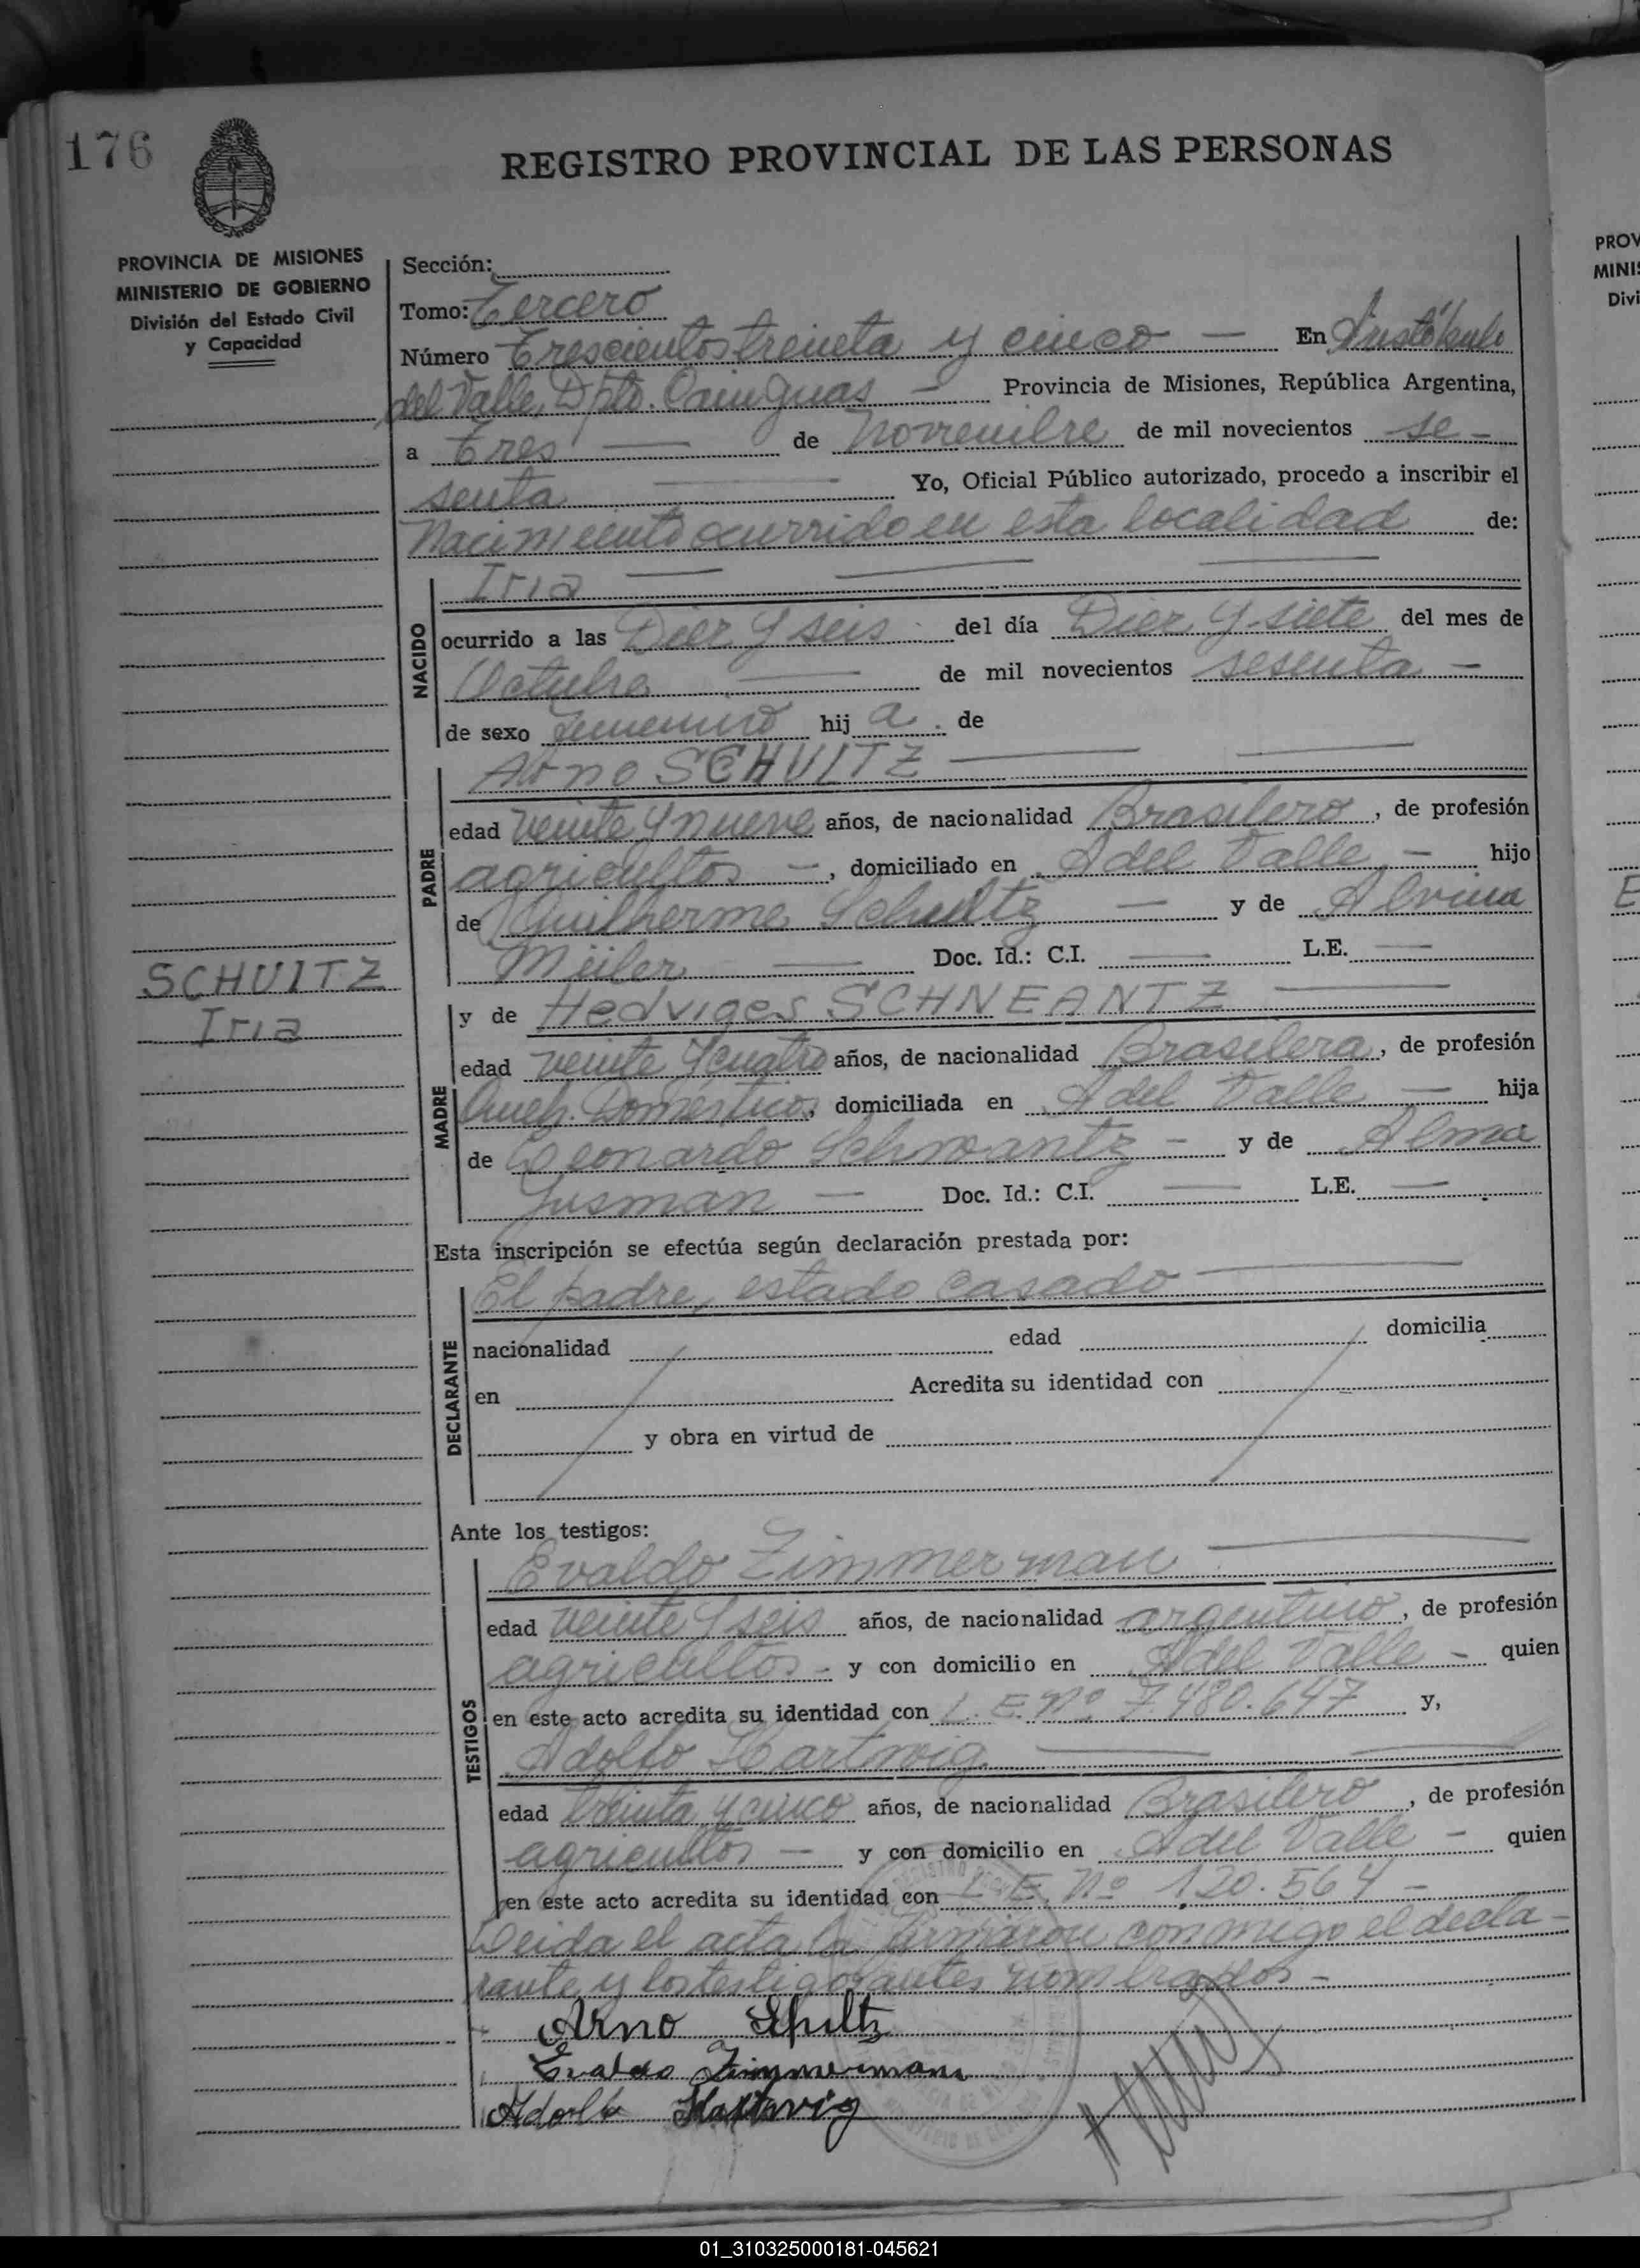 176
REGISTRO PROVINCIAL DE LAS PERSONAS
PROVINCIA DE MISIONES
MINISTERIO DE GOBIERNO
División del Estado Civil
y Capacidad
Sección:
Tomo: Tercero
Número Trescientos treinta y cinco — En Aristóbulo
del Valle, Dpto. Cainguas — Provincia de Misiones, República Argentina,
a Tres — de Noviembre de mil novecientos se-
senta — Yo, Oficial Público autorizado, procedo a inscribir el
Nacimiento ocurrido en esta localidad de:
NACIDO
Iria
ocurrido a las Diez y seis del día Diez y siete del mes de
Octubre — de mil novecientos sesenta —
de sexo femenino hij a. de
PADRE
Arno SCHUITZ
edad veinte y nueve años, de nacionalidad Brasilero, de profesión
agricultor —, domiciliado en A del Valle, — hijo
de Guilherme Schultz — y de Alvina
Müler — Doc. Id.: C.I. — L.E. —
SCHUITZ
Iria
MADRE
y de Hedviges SCHNEANTZ —
edad veinte y cuatro años, de nacionalidad Brasilera, de profesión
Queh. Domésticos, domiciliada en A del Valle — hija
de Leonardo Schwantz — y de Alma
Jusman — Doc. Id.: C.I. — L.E. —
Esta inscripción se efectúa según declaración prestada por:
DECLARANTE
El padre, estado casado —
nacionalidad edad domicilia
en Acredita su identidad con
y obra en virtud de
Ante los testigos:
TESTIGOS
Evaldo Zimmerman —
edad veinte y seis años, de nacionalidad argentino, de profesión
agricultor - y con domicilio en A del Valle - quien
en este acto acredita su identidad con L. E. Nº 7.480.647 y,
Adolfo Hartwig —
edad treinta y cinco años, de nacionalidad Brasilero, de profesión
agricultor — y con domicilio en A del Valle — quien
en este acto acredita su identidad con L. E. Nº 120.564 -
Leida el acta la firmaron conmigo el decla-
rante y los testigos antes nombrados -
Arno Schultz
Evaldo Zimmermann
Adolfo Hartwig
PROV
MINIS
Divi
E
01_310325000181-045621